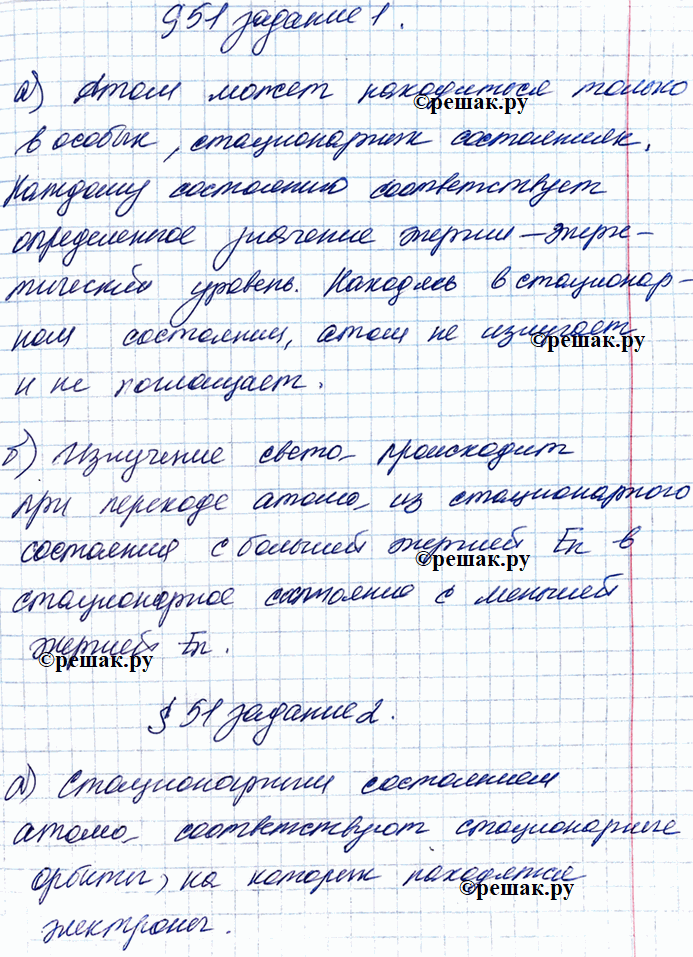 § 51 задание 1.
а) Атом может находиться только
©решак.ру
в особых, стационарных состояниях.
Каждому состоянию соответствует
определенное значение энергии – энерге-
тический уровень. Находясь в стационар-
ном состоянии, атом не излучает
©решак.ру
и не поглощает.
б) Излучение света происходит
при переходе атома из стационарного
состояния с большей энергией En в
©решак.ру
стационарное состояние с меньшей
энергией En.
©решак.ру
§ 51 задание 2.
а) Стационарным состояниям
атома соответствуют стационарные
орбиты, на которых находятся
©решак.ру
электроны.